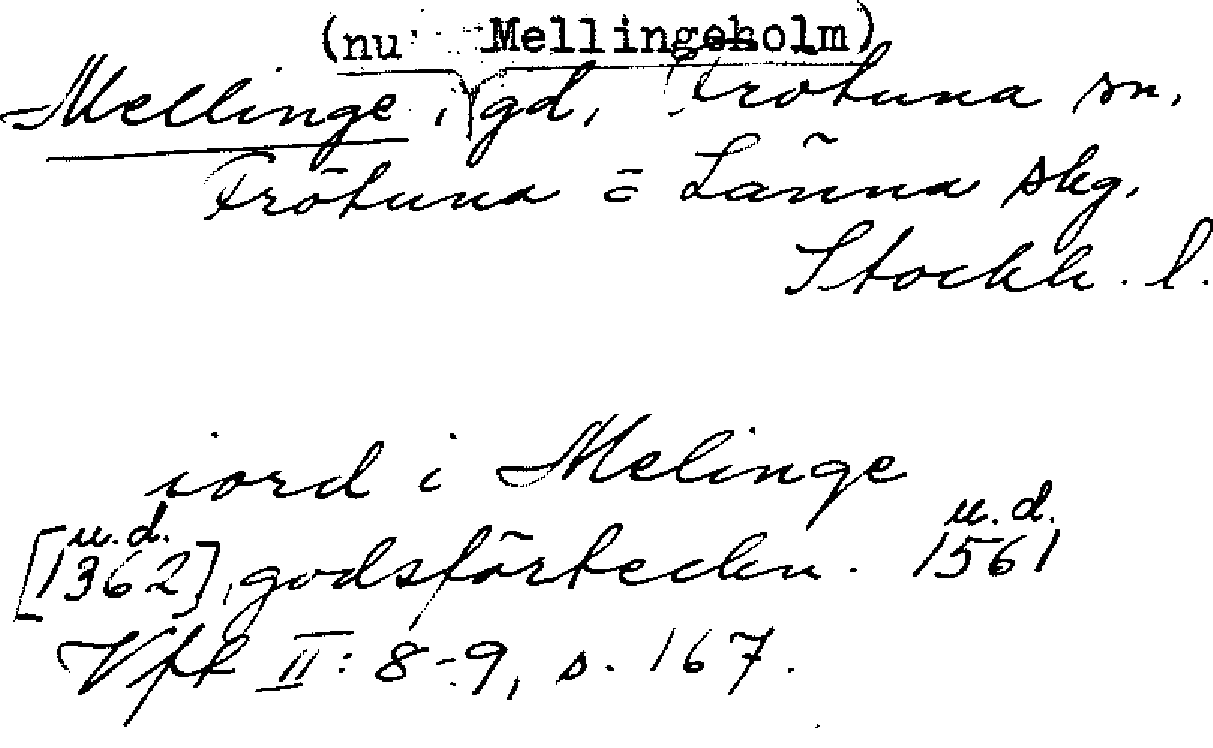 (nu Mellingeholm)
Mellinge, gd, Frötuna sn,
Frötuna o Länna skg.
Stockh. l.
iord i Melinge
u.d. u.d.
[1362], godsförteckn. 1561
Vfk II: 8-9, s. 167.